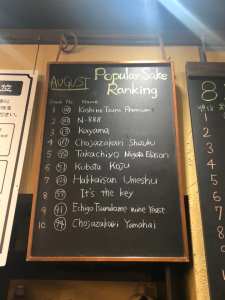 AUGUST
Popular Sake
Ranking
Rank No. Name
1 Koshino Tsuru Premium
2 N-888
3 Kayama
4 Chojazakari Shuuku
5 Takachiyo Niigata Edition
6 51 Kubota Koju
7 Hakkaisan Umeshu
8 It's the key
9 41 Echigo Tsurukame wine Yeast
10 94 Chojazakari Yamahai
8
1
2
3
4
5
6
7
8
9
10
位